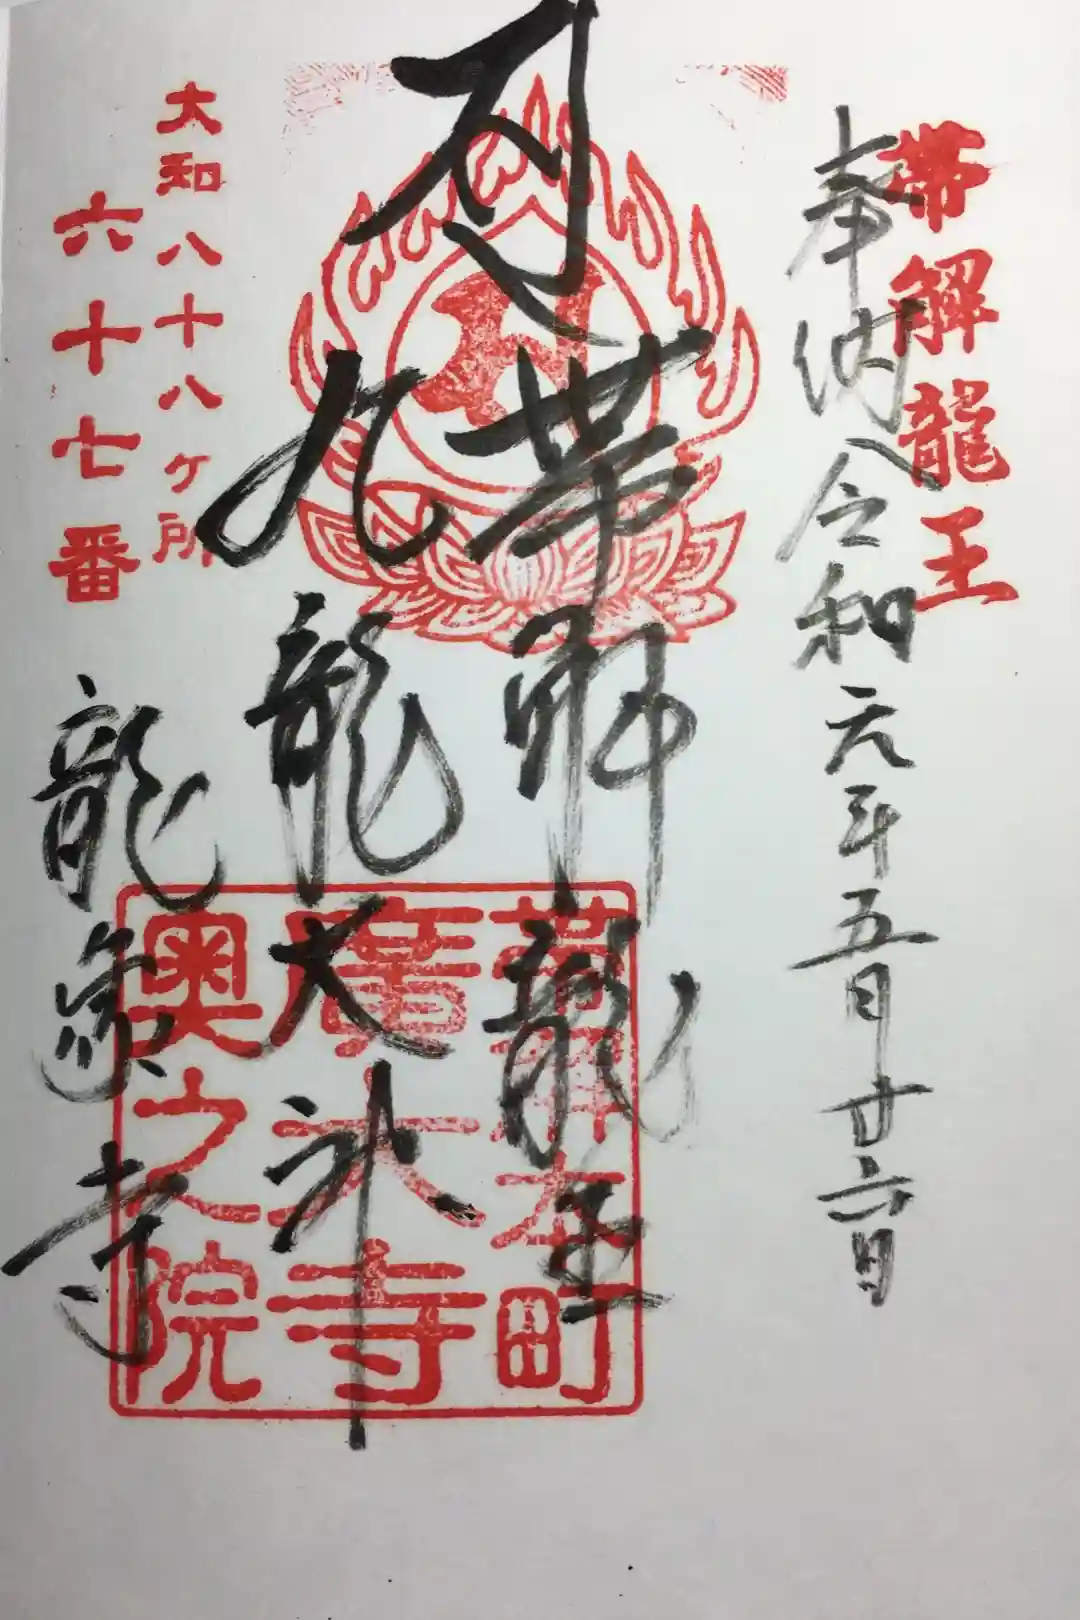 帯解龍王
奉納 令和元年五月廿六日
帯解龍王
九龍大神
龍象寺
大和八十八ケ所
六十七番
帯解本町
廣大寺
奥之院